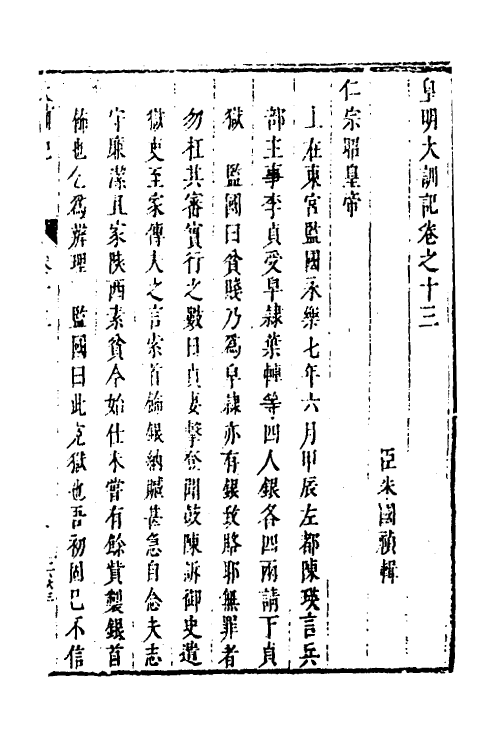 皇明大訓記卷之十三
臣朱國禎輯
仁宗昭皇帝
上在東宮監國永樂七年六月甲辰左都陳瑛言兵
部主事李貞受皁隸葉轉等四人銀各四兩請下貞
獄 監國曰貧賤乃爲皁隸亦有銀致賂耶無罪者
勿枉其審實行之數日貞妻擊登聞鼓陳訴御史遣
獄吏至家傳夫之言索首飾銀納贓甚急自念夫志
守廉潔且家陝西素貧今始仕未嘗有餘貲製銀首
飾也乞爲辨理 監國曰此寃獄也吾初固已不信
大訓記 卷十三